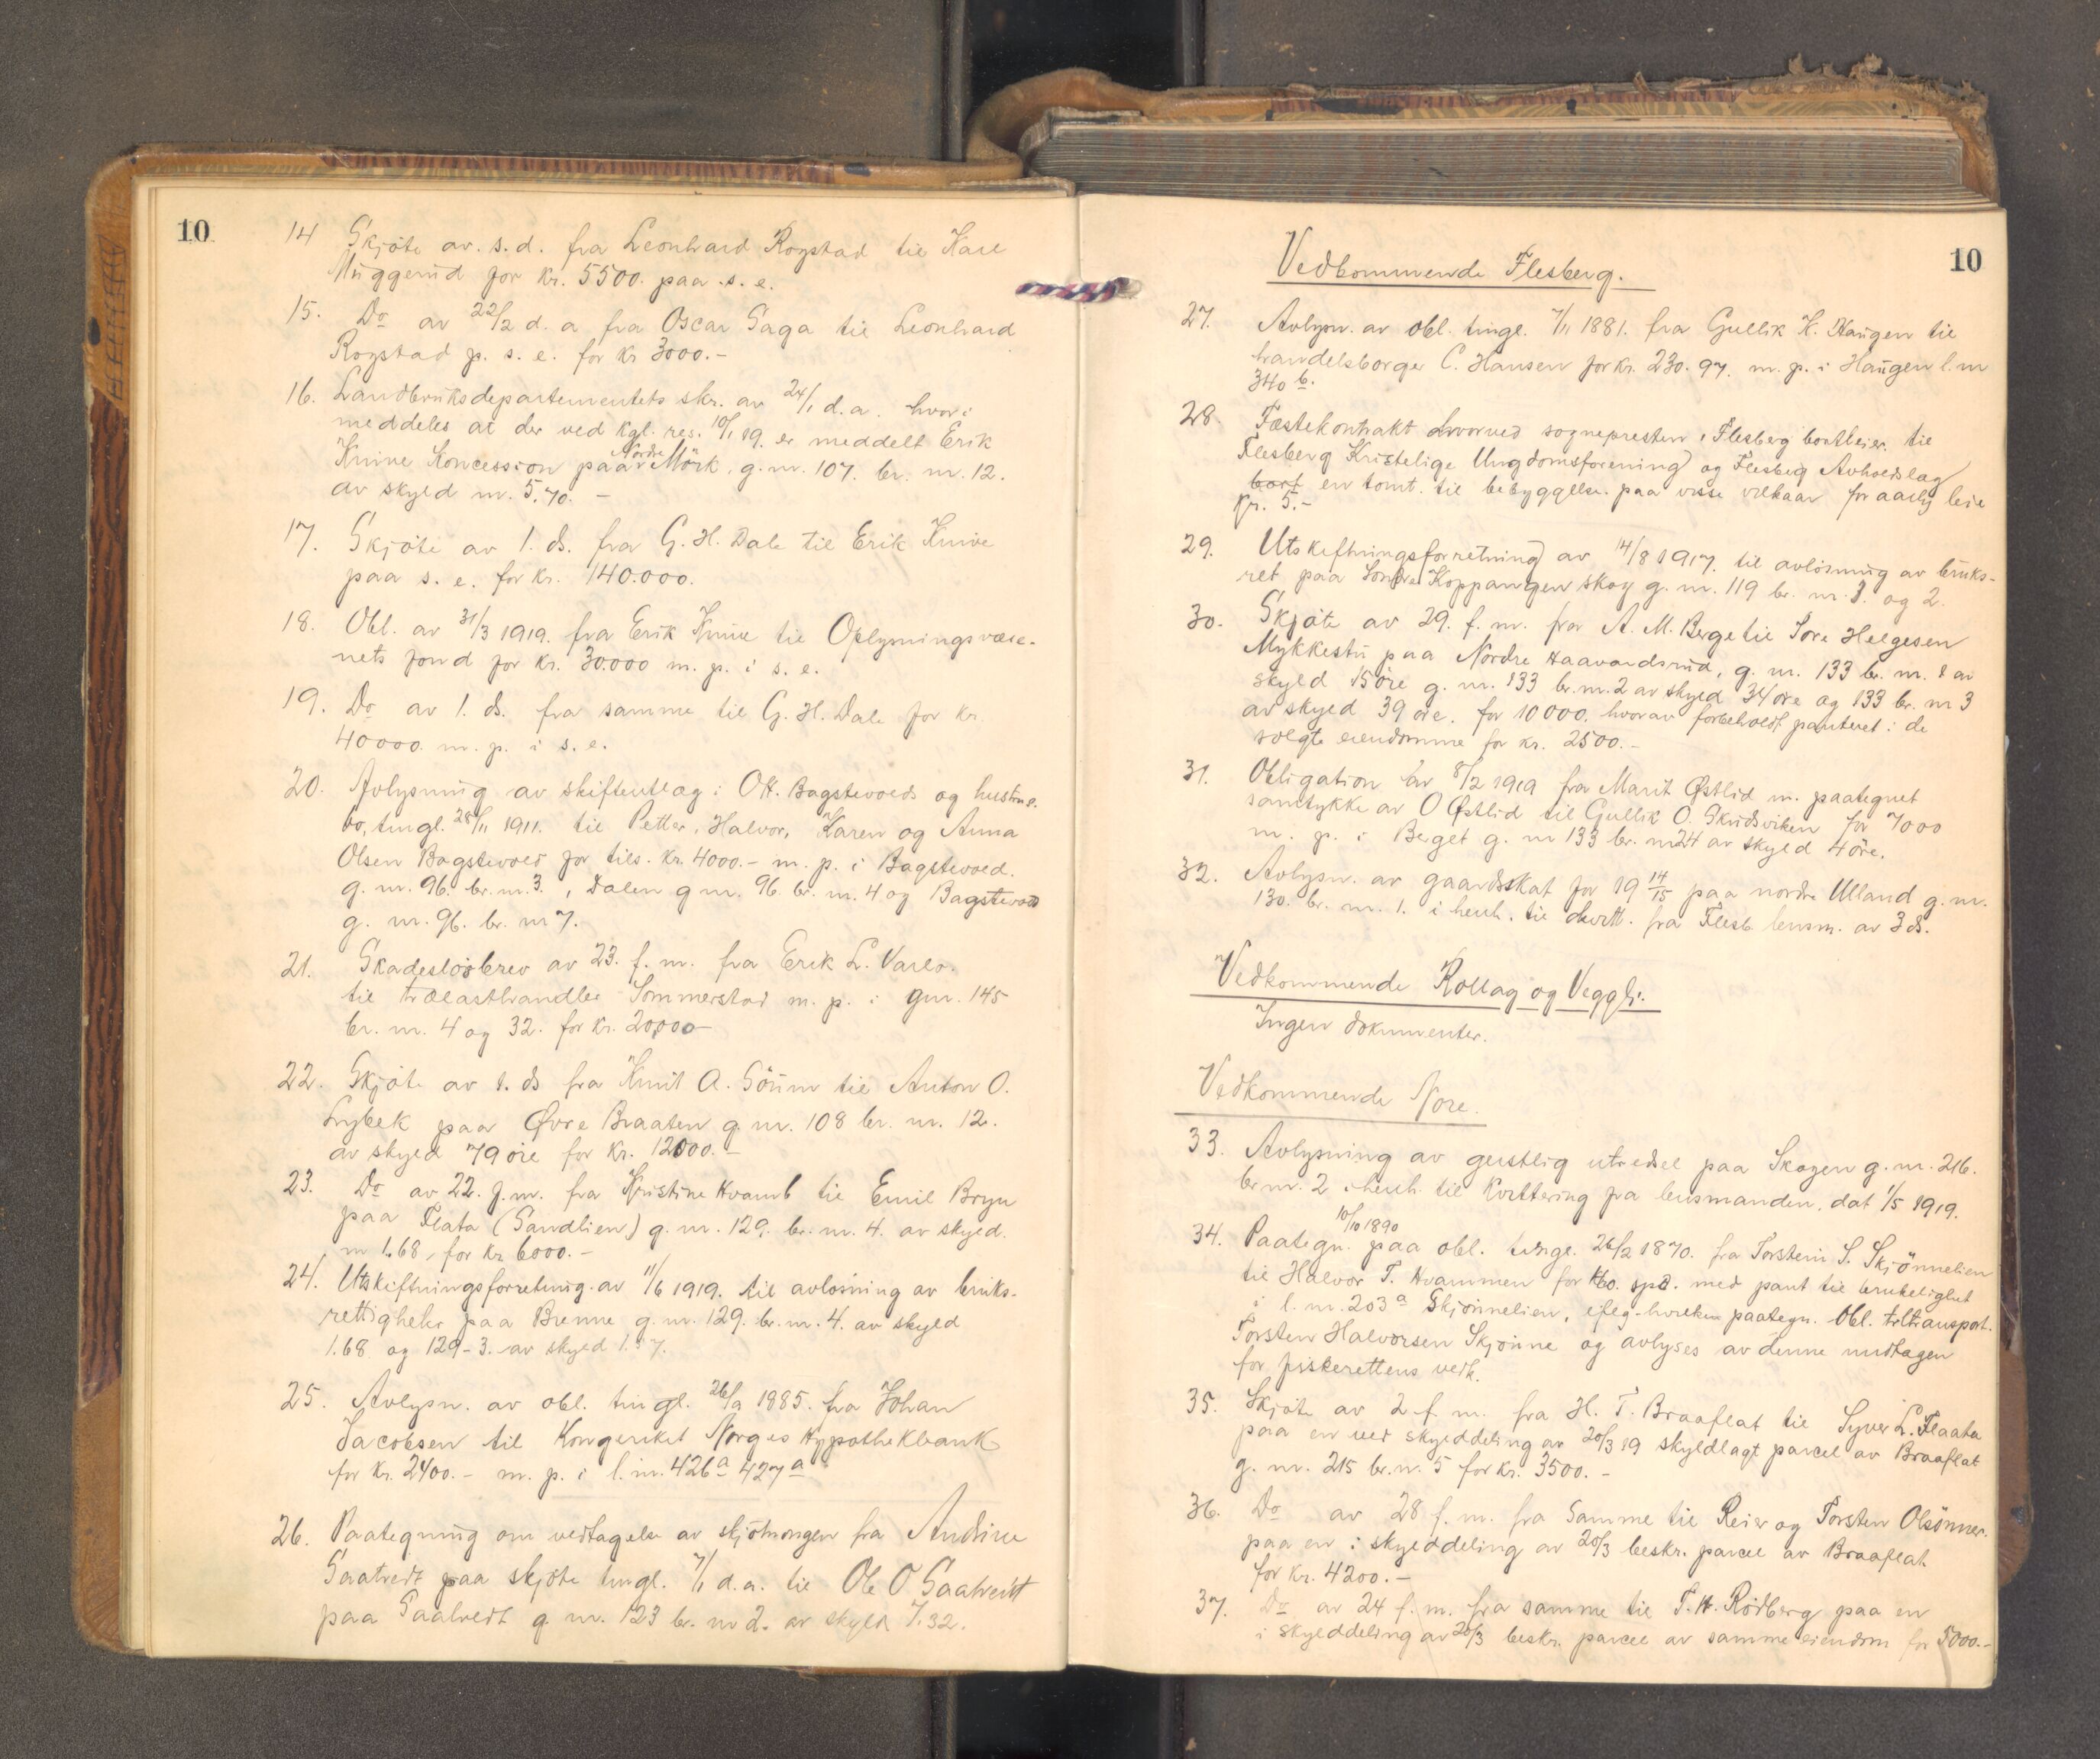 10
14 Skjöte av. s. d. fra Leonhard Rogstad til Kare
Muggerud for kr. 5500. paa s. e.
15. Do av 22/2 d. a fra Oscar Saga til Leonhard
Rogstad p. s. e. for kr 3000.-
16. Landbruksdepartementets skr. av 24/1 d. a. hvori
meddeles at der ved kgl. res. 10/1 19. er meddelt Erik
Knive Koncession paa Nordre Mörk, g. nr. 107. br. nr. 12.
av skyld m. 5.70. -
17. Skjöte av 1. ds. fra G. H. Dale til Erik Knive
paa s. e. for kr. 140.000.
18. Obl. av 31/3 1919. fra Erik Knive til Oplysningsvæse-
nets fond for kr. 30.000 m. p. i s. e.
19. Do av 1. ds. fra samme til G. H. Dale for kr.
40000. m. p. i s. e.
20. Avlysning av skifteutlæg i O. H. Bagstevolds og hustrus.
bo, tingl. 28/11 1911. til Petter, Halvor, Karen og Anna
Olsen Bagstevold for tils. kr. 4000.- m. p. i Bagstevold.
g. nr. 96. br. nr. 3., Dalen g nr. 96. br. nr. 4 og Bagstevold
g. nr. 96. br. nr 7.
21. Skadeslösbrev av 23. f. m. fra Erik L. Varlo.
til trælasthandler Sommerstad m. p. i gnr. 145
br. nr. 4 og 32. for kr. 20,000-
22. Skjöte av 1. ds fra Knut A. Göum til Anton O.
Lybek paa Øvre Braaten g. nr. 108 br. nr. 12.
av skyld 79 öre for kr. 12000.-
23. Do av 22. f. m. fra Kristine Kvamb til Emil Bryn
paa Flata (Sandlien) g. nr. 129. br. nr. 4. av skyld.
m 1.68, for kr. 6000.-
24. Utskiftningsforretning av 11/6 1919. til avlösning av bruks-
rettigheter paa Brenne g. nr. 129. br. nr. 4. av skyld
1.68 og 129-3. av skyld
25. Avlysn. av obl. tingl. 26/9 1885. fra Johan
Jacobsen til Kongeriket Norges Hypothekbank
for kr. 2400.- m. p. i l. nr. 426 a 427 a
26. Paategning om vedtagelse av skjötningen fra Andrine
Saatvedt paa skjöte tingl. 7/1 d. a. til Ole O Saatvedt
paa Saatvedt g. nr. 123 br. nr 2. av skyld 7.32.
10
Vedkommende Flesberg.
27. Avlysn. av obl. tingl. 7/11 1881. fra Gullik K. Haugen til
handelsborger C. Hansen for kr. 230.97. m. p. i Haugen l. nr
340 b.
28. Fæstekontrakt hvorved sognepresten i Flesberg bortleier til
Flesberg Kristelige Ungdomsforening og Flesberg Avholdslag
bort en tomt. til bebyggelse. paa visse vilkaar for aarlig leie
kr. 5.-
29. Utskiftningsforretning av 14/8 1917. til avlösning av bruks-
ret paa Söndre Koppangen skog g. nr. 119 br. nr. 1. og 2.
30. Skjöte av 29. f. m. fra A. M. Berge til Tore Helgesen
Mykkestu paa Nordre Haavardsrud, g. nr. 133 br. nr. 1 av
skyld 15 öre g. nr. 133 br. nr. 2 av skyld 34 öre og 133 br. nr 3
av skyld 39 öre. for 10000. hvorav forbeholdt panteret i de
solgte eiendomme for kr. 2500.-
31. Obligation av 8/2 1919 fra Marit Østlid m. paategnet
samtykke av O Østlid til Gullik O. Skudsviken for 7000
m. p. i Berget g. nr 133 br. nr 24 av skyld 4 öre.
32. Avlysn. av gaardsskat for 19 14/15 paa nordre Ulland g. nr.
130. br. nr. 1. i henh. til kvitt. fra Flesb. lensm. av 3 ds.
Vedkommende Rollag og Veggli.
Ingen dokumenter.
Vedkommende Nore.
33. Avlysning av geistlig utredsel paa Skogen g. nr. 216.
br nr. 2 i henh. til kvittering fra lensmanden. dat 1/5 1919.
34. Paategn. 10/10 1890 paa obl. tingl. 26/2 1870. fra Torstein S. Skjönnelien
til Halvor T. Kvammen for 460. spd. med pant til herukelighet
i l. nr. 203 a Skjönnelien, ifølg. hvilken paategn. Obl. tiltransport.
Torsten Halvorsen Skjönne og avlyses av denne undtagen
for fiskerettens vedk.
35. Skjöte av 2. f. m. fra H. T. Braaflat til Syver L. Flaata
paa en ved skylddeling av 20/3 19 skyldlagt parcel av Braaflat
g. nr. 215 br. nr. 5 for kr. 3500.-
36. Do av 28 f. m. fra Samme til Reier og Torsten Olsönner.
paa en i skylddeling av 20/3 beskr. parcel av Braaflat
for kr. 4200.-
37. Do av 24 f. m. fra samme til T. H. Rödberg paa en
i skylddeling av 20/3 beskr. parcel av samme eiendom for 5000.-